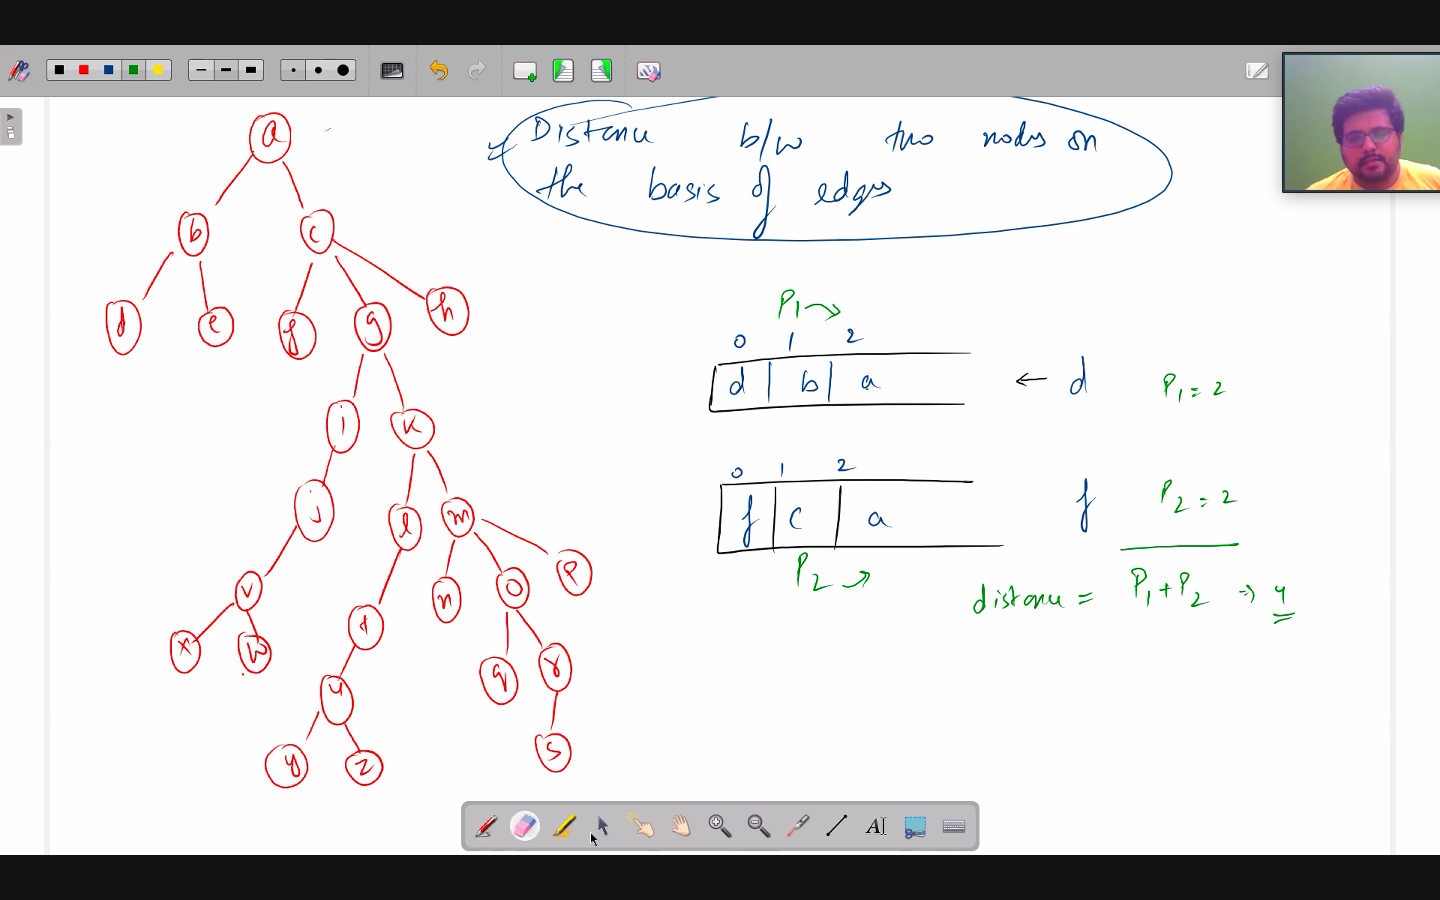 Distance b/w two nodes on
the basis of edges
a
b c
d e f g h
i k
j l m
v n o p
x w t q r
u s
y z
P1→
0 1 2
d | b | a ← d P1 = 2
0 1 2
f | c | a f P2 = 2
P2→
distance = P1+P2 ⇒ 4
AI